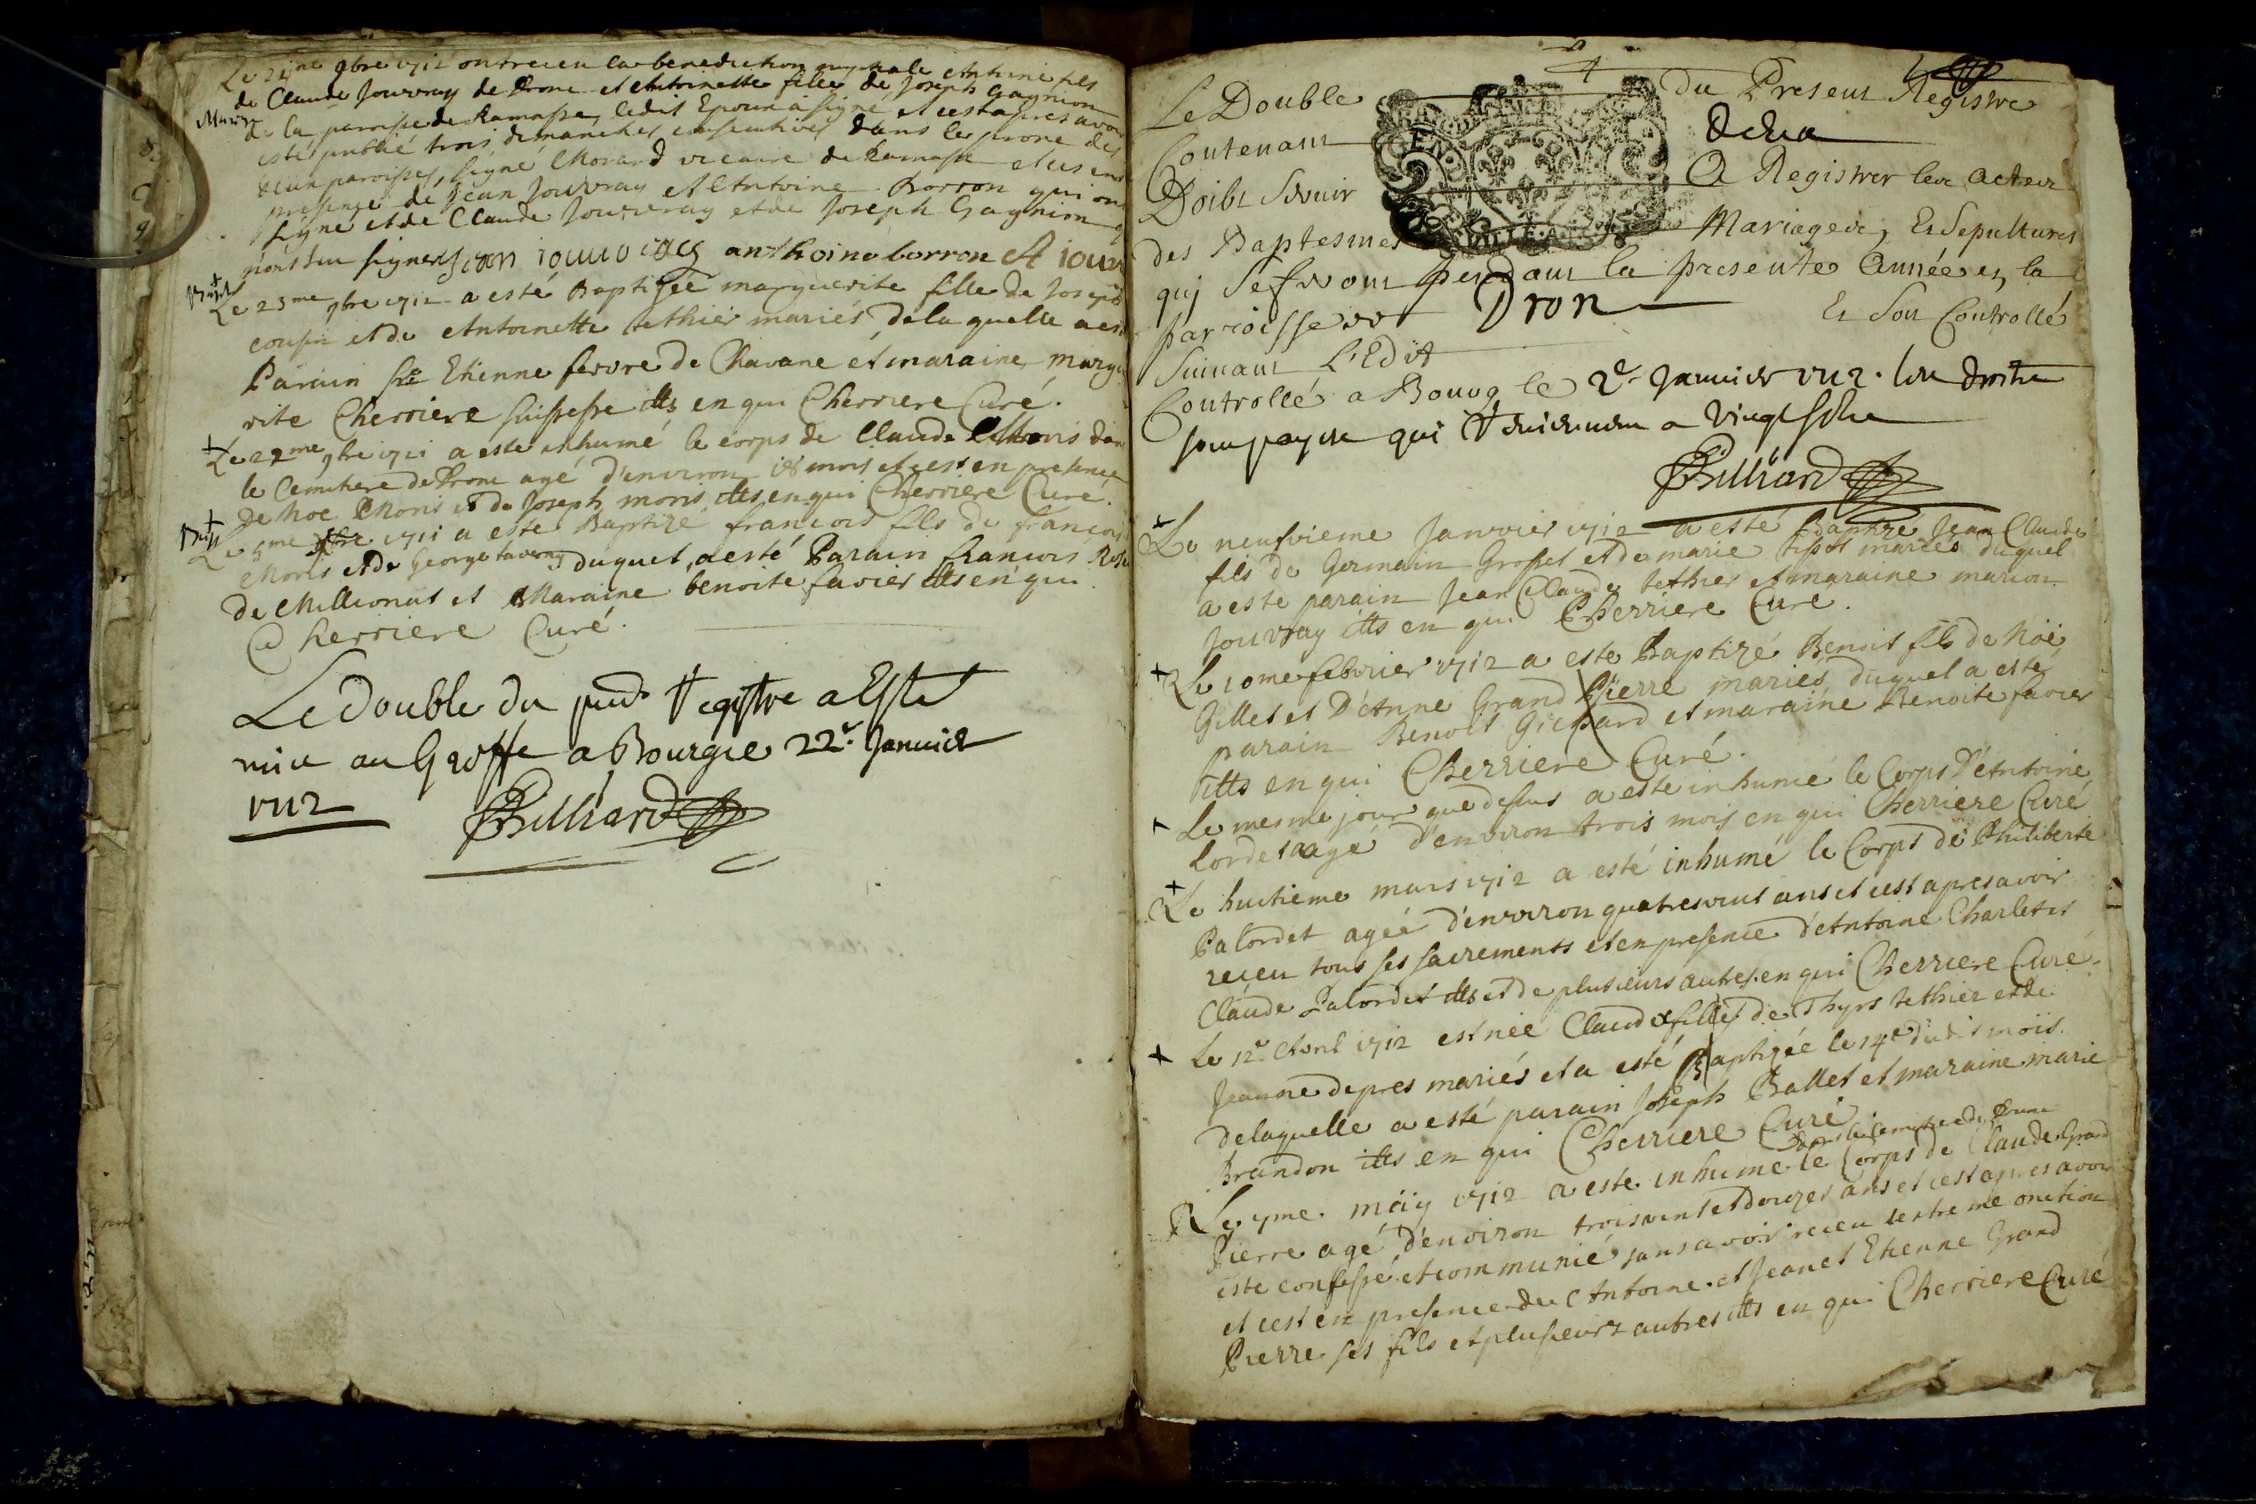 Le 24me 9bre 1712 ont receu la benediction nuptiale Antoine fils
de Claude Jouvray de Dronc et Antoinette fille de Joseph Gagnion
Mariage
de la paroisse de Ramasse, ledit Epoux a signé et cest apres avoir
esté publié trois dimanches consecutives dans les prone des
deux paroisses, signé Morand vicaire de Ramasse et ces en
presence de Jean Jouvray et Antoine Borron qui on
signe et de Claude Jouvray et de Joseph Gagnion
anthoine borron A iouv
Bapt
Le 25me 9bre 1712 a esté Baptizée marguerite fille de Joseph
cousin et de Antoinette tethier mariés de la quelle a est
Parain Etienne fevvre de Chavane et maraine Margu
rite Cherriere en qui Cherriere Curé.
Le 29me 9bre 1711 a esté inhumé le corps de Claude Moris dan
le Cemitiere de Dronc agé d'environ 18 mois et cest en presence
de Noe Moris et de Joseph moris itts en qui Cherriere Curé.
Bapt
Le 5me 1711 a esté Baptizé francois fils de francois
Moris et de George duquel a esté Parain francois
de Millionas et Maraine benoite favier itts en qui
Cherriere Curé.
Le Double du pnt Registre a Esté
mis au Greffe a Bourg le 22e. Janvier
1712
Billiard
4
Le Double du Present Registre
Contenant
Doibt Servir A Registrer les Actes
GEN.
des Baptesmes Mariages, Et Sepultures
quj Se feront pendant la presente Année en la
parroisse de Dron Et Son Controllé
Suivant L'Edit
Controllé a Bourg le 2e. Janvier 1712. les droits
qui a Vingt sols
Billiard
Le neufvieme Janvier 1712 a esté Baptizé Jean Claude
fils de Germain Grosset et de marie tissot mariés duquel
a esté parain Jean Claude tethier et maraine marion
Jouvray itts en qui Cherriere Curé.
Le 10me febvrier 1712 a esté Baptizé Benoit fils de Noë
Gillet et D'Anne Grand Pierre mariés duquel a esté
parain Benoit Guichard et maraine Benoite favier
itts en qui Cherriere Curé.
Le mesme jour que dessus a esté inhumé le Corps D'Antoine
lordet agé d'environ trois mois en qui Cherriere Curé
Le huitieme mars 1712 a esté inhumé le Corps de Philiberte
Palordet agée d'environ quatrevint ans et cest apres avoir
receu tous ses sacrements et en presence d'Antoine Charlet et
Claude Palordet itts et de plusieurs autres en qui Cherriere Curé.
Le 12e Avril 1712 est née Claude fille de Thyrs tethier et de
Jeanne depres mariés et a esté Baptizée le 14e dudit mois.
delaquelle a esté parain Joseph Ballet et maraine marie
Brandon itts en qui Cherriere Curé
dans le cemitiere de Dronc
Le 7me. maiy 1712 a esté inhumé le Corps de Claude Grand
Pierre agé d'environ troisvint et douzes ans et cest apres avoir
esté confessé et communié sans avoir receu lextreme onction
et cest en presence de Antoine et Jean et Etienne Grand
Pierre ses fils et plusieurs autres itts en qui Cherriere Curé